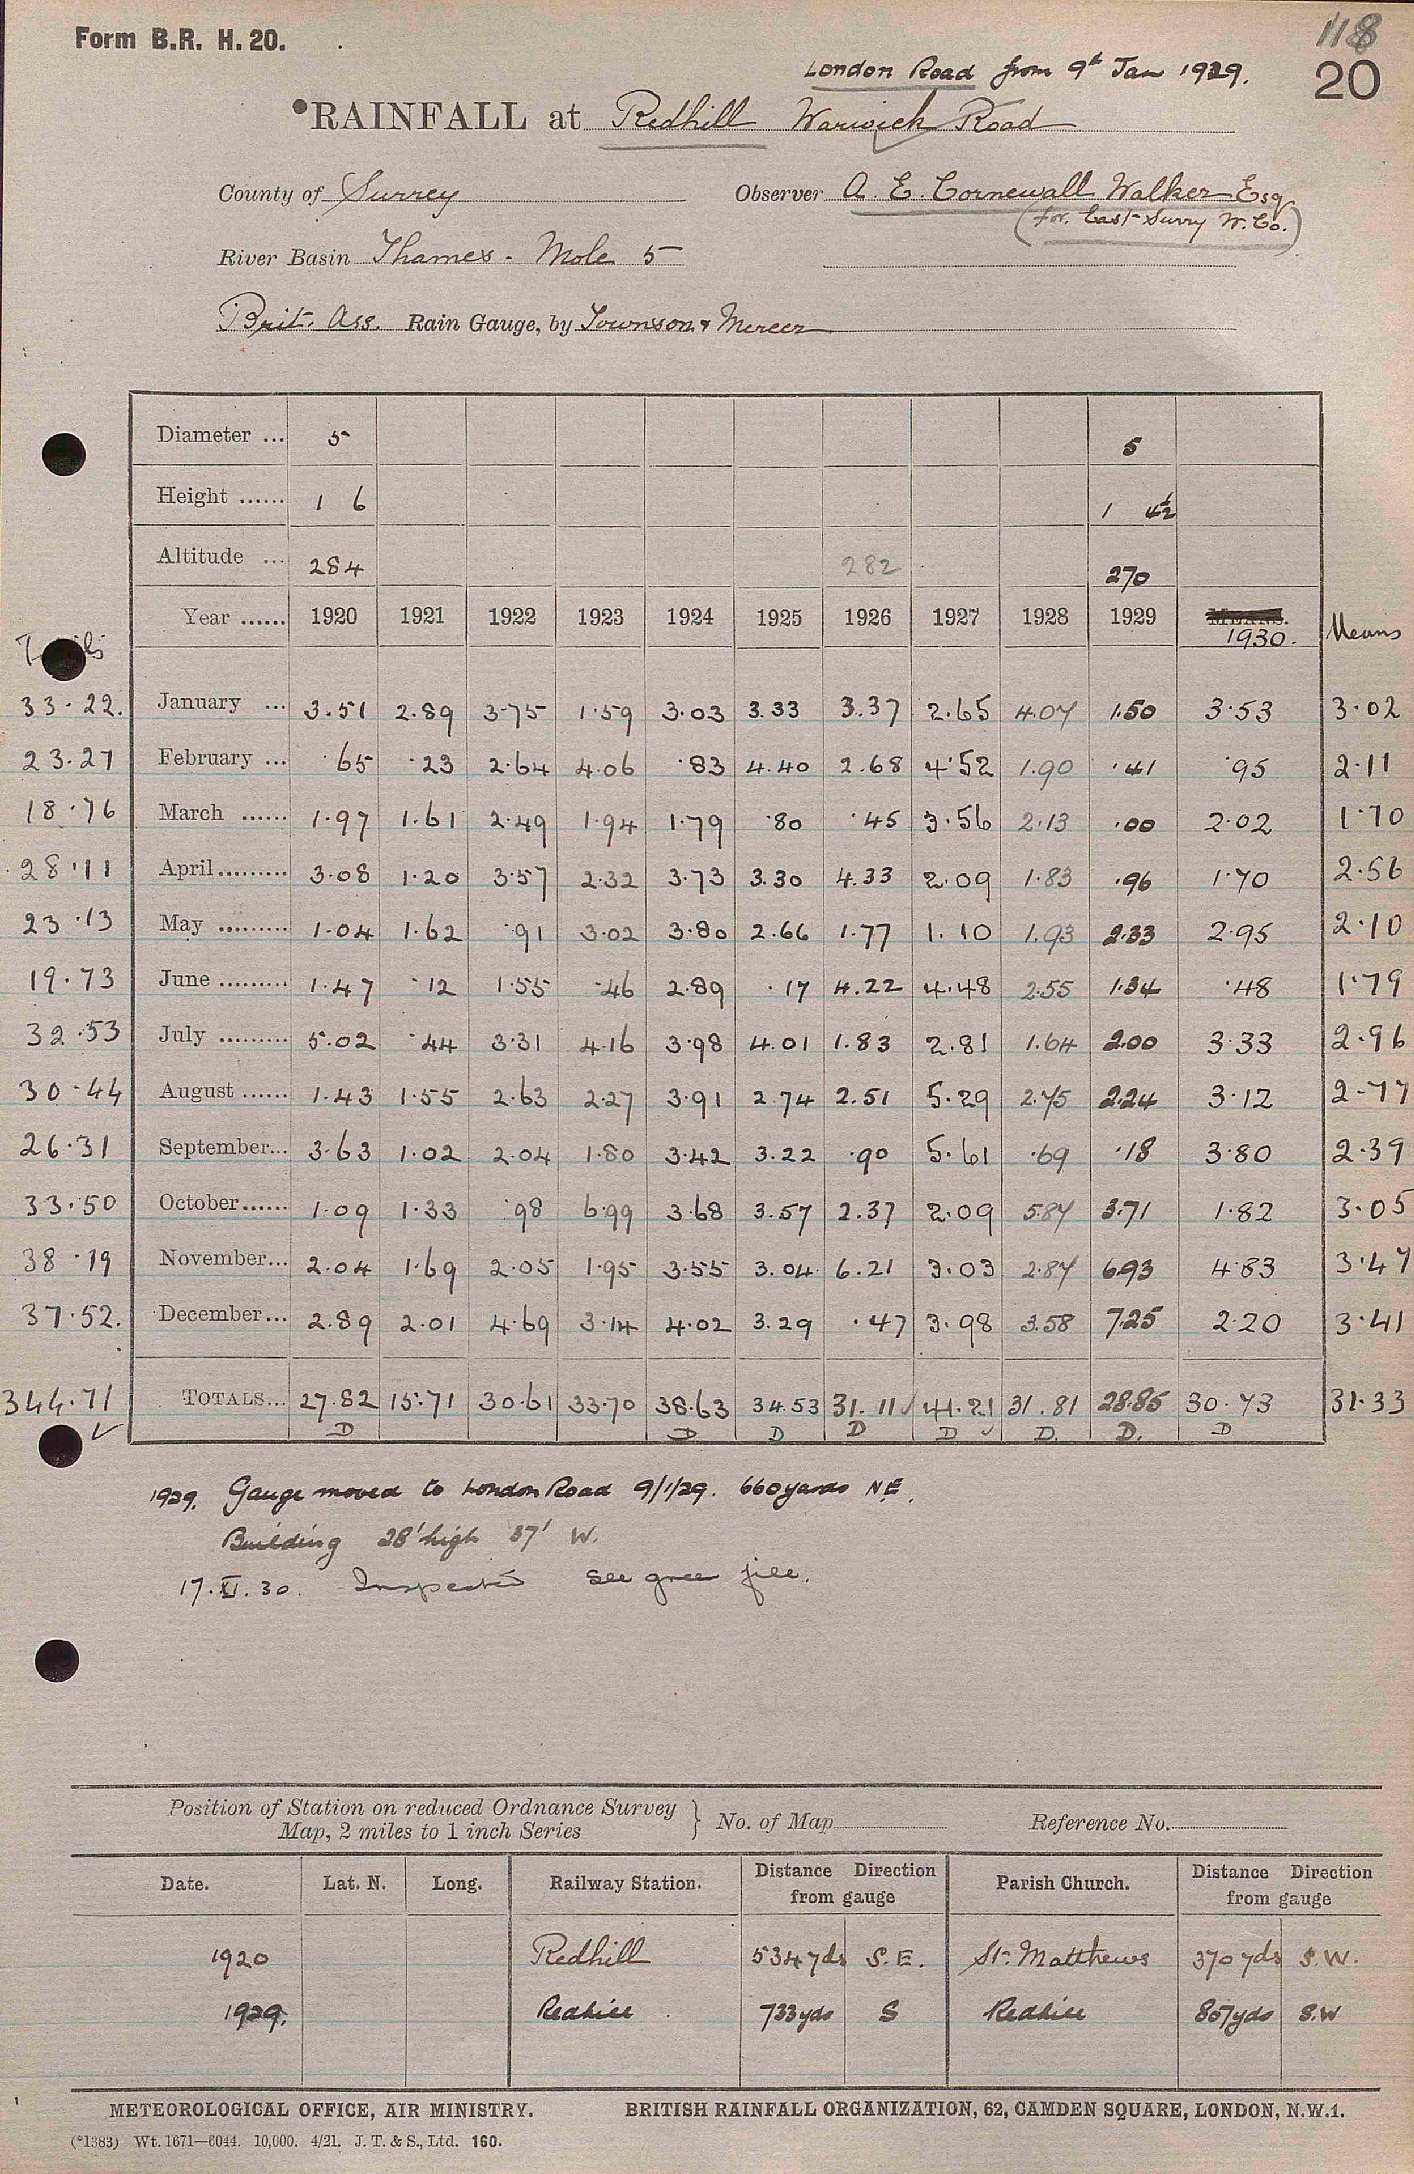 Form B.R. H. 20.
118
20
London Road from 9th Jan 1929.
RAINFALL at Redhill Warwick Road
County of Surrey Observer A. E. Cornewall Walker Esq
(for East Surry W. Co.)
River Basin Thames - Mole 5
Brit. Ass. Rain Gauge, by Townson & Mercer
Diameter ... 5 5
Height ...... 1 6 1 4½
Altitude ... 284 282 270
Year ...... 1920 1921 1922 1923 1924 1925 1926 1927 1928 1929 MEANS. 1930. Means
33.22. January ... 3.51 2.89 3.75 1.59 3.03 3.33 3.37 2.65 4.07 1.50 3.53 3.02
23.27 February ... .65 .23 2.64 4.06 .83 4.40 2.68 4.52 1.90 .41 .95 2.11
18.76 March ...... 1.97 1.61 2.49 1.94 1.79 .80 .45 3.56 2.13 .00 2.02 1.70
28.11 April ......... 3.08 1.20 3.57 2.32 3.73 3.30 4.33 2.09 1.83 .96 1.70 2.56
23.13 May ......... 1.04 1.62 .91 3.02 3.80 2.66 1.77 1.10 1.93 2.33 2.95 2.10
19.73 June ......... 1.47 .12 1.55 .46 2.89 .17 4.22 4.48 2.55 1.34 .48 1.79
32.53 July ......... 5.02 .44 3.31 4.16 3.98 4.01 1.83 2.81 1.64 2.00 3.33 2.96
30.44 August ...... 1.43 1.55 2.63 2.27 3.91 2.74 2.51 5.29 2.75 2.24 3.12 2.77
26.31 September... 3.63 1.02 2.04 1.80 3.42 3.22 .90 5.61 .69 .18 3.80 2.39
33.50 October...... 1.09 1.33 .98 6.99 3.68 3.57 2.37 2.09 5.87 3.71 1.82 3.05
38.19 November... 2.04 1.69 2.05 1.95 3.55 3.04 6.21 3.03 2.87 6.93 4.83 3.47
37.52. December... 2.89 2.01 4.69 3.14 4.02 3.29 .47 3.98 3.58 7.25 2.20 3.41
344.71 TOTALS... 27.82 15.71 30.61 33.70 38.63 34.53 31.11 41.21 31.81 28.85 30.73 31.33
D D D D D D. D. D
1929. Gauge moved to London Road 9/1/29. 660 yards NE.
Building 28' high 37' W.
17.XI.30. Inspected See green file.
Position of Station on reduced Ordnance Survey
Map, 2 miles to 1 inch Series } No. of Map Reference No.
Date. Lat. N. Long. Railway Station. Distance Direction from gauge Parish Church. Distance Direction from gauge
1920 Redhill 534 yds S.E. St. Matthews 370 yds S.W.
1929. Redhill 733 yds S Redhill 807 yds S.W
METEOROLOGICAL OFFICE, AIR MINISTRY. BRITISH RAINFALL ORGANIZATION, 62, CAMDEN SQUARE, LONDON, N.W.1.
(*1383) Wt. 1671—6044. 10,000. 4/21. J. T. & S., Ltd. 160.